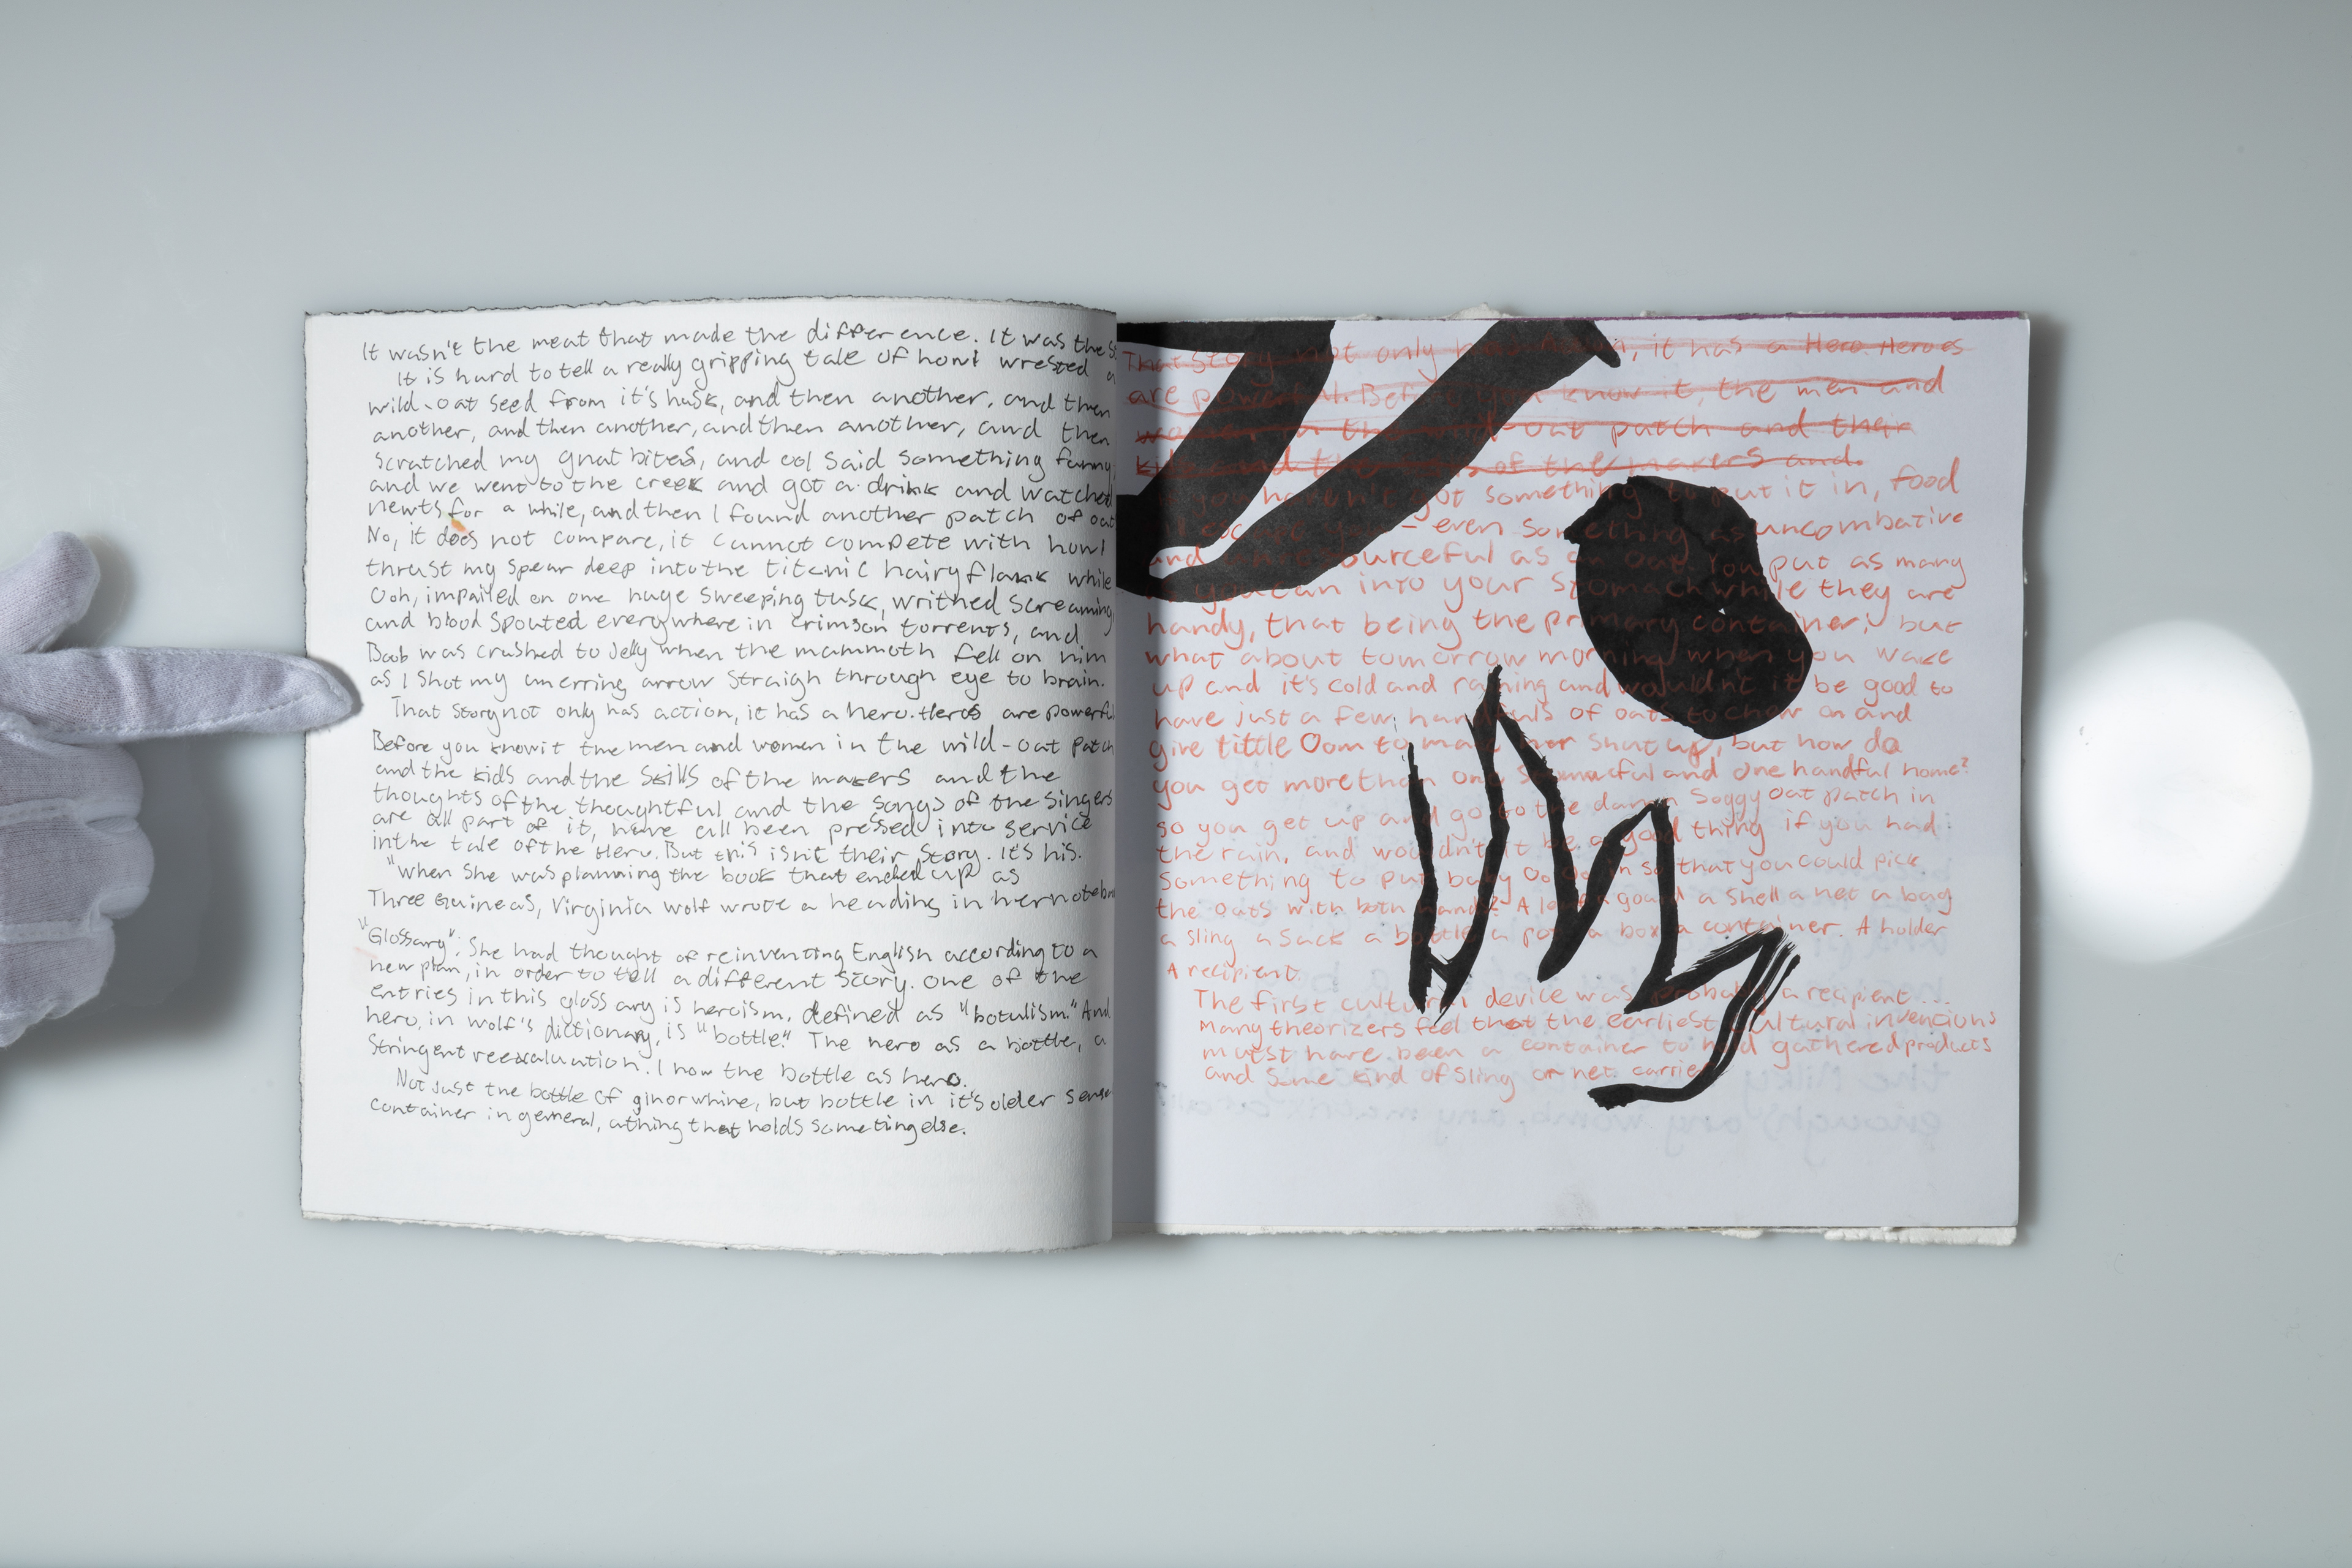 It wasn't the meat that made the difference. It was the
It is hard to tell a really gripping tale of how I wrested a
wild-oat seed from it's husk, and then another, and then
another, and then another, and then another, and then
scratched my gnat bites, and ool said something funny
and we went to the creek and got a drink and watched
newts for a while, and then I found another patch of oat
No, it does not compare, it cannot compete with how I
thrust my spear deep into the titanic hairy flank while
Ooh, impailed on one huge sweeping tusk, writhed screaming,
and blood spouted everywhere in crimson torrents, and
Boob was crushed to Jelly when the mammoth fell on him
as I shot my unerring arrow straigh through eye to brain.
That story not only has action, it has a hero. Heros are powerful
Before you know it the men and women in the wild-oat patch
and the kids and the skills of the makers and the
thoughts of the thoughtful and the songs of the singers
are all part of it, have all been pressed into service
in the tale of the Hero. But this isn't their story. It's his.
"When she was planning the book that ended up as
Three Guineas, Virginia Wolf wrote a heading in her notebo
"Glossary": She had thought of reinventing English according to a
new plan, in order to tell a different story. One of the
entries in this glossary is heroism, defined as "botulism." And
hero, in wolf's dictionary, is "bottle." The hero as a bottle, a
Stringent reevaluation. I now the bottle as hero.
Not Just the bottle of gin or whine, but bottle in it's older sense
container in general, a thing that holds someting else.
That Story not only, it has a Hero. Heroes
are powerful. Before you know it, the men and
women in the wild-oat patch and their
kids and the of the makers and.
you haven't got something to put it in, food
escape – even something as uncombative
and unresourceful as an oat. You put as many
as you can into your stomach while they are
handy, that being the primary container; but
what about tomorrow morning when you wake
up and it's cold and raining and wouldn't it be good to
have just a few handfuls of oats to chew on and
give little Oom to make her shut up, but how do
you get more than one stomacful and one handful home?
so you get up and go to the damn soggy oat patch in
the rain, and wouldn't it be a good thing if you had
something to put baby Oo Oo in so that you could pick
the oats with both hands? A leaf a gourd a shell a net a bag
a sling a sack a bottle a pot a box a container. A holder
A recipient.
The first cultural device was probably a recipient ...
Many theorizers feel that the earliest cultural inventions
must have been a container to hold gathered products
and some kind of sling or net carrier